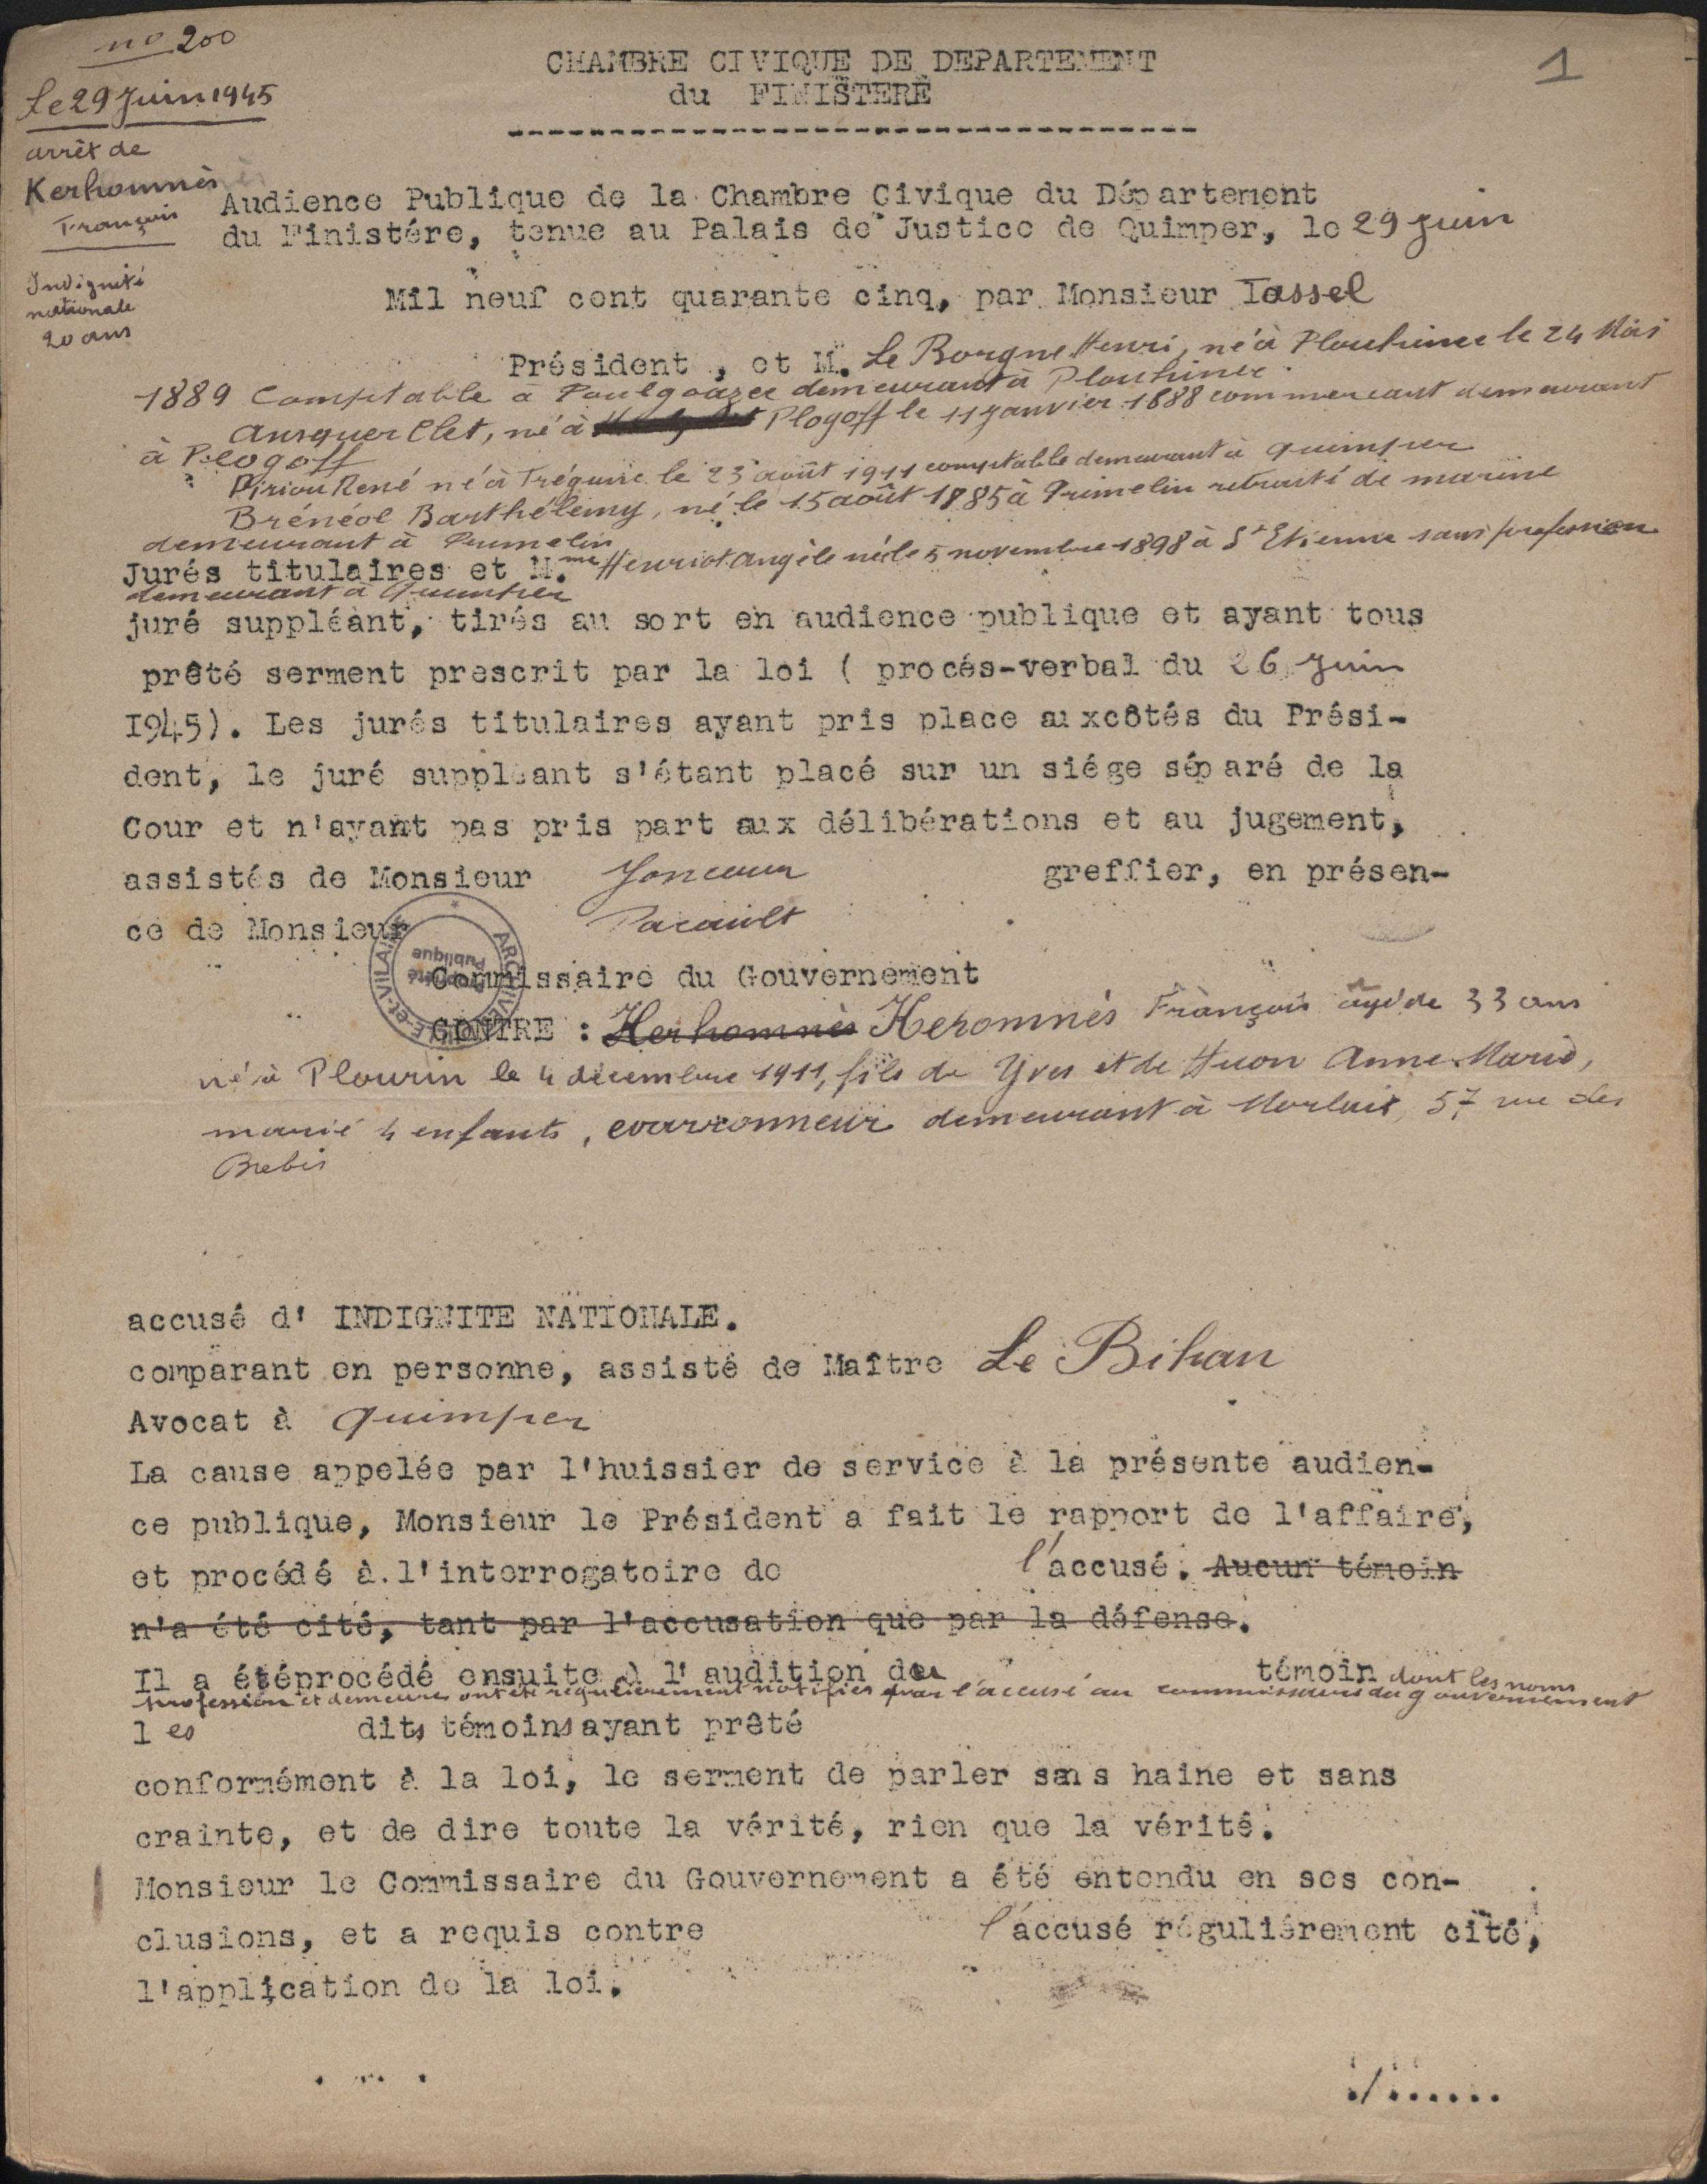 no 200
Le 29 Juin 1945
arrêt de
Kerhomnès
François
Indignité
nationale
20 ans
1
CHAMBRE CIVIQUE DE DEPARTEMENT
du FINISTERE
Audience Publique de la Chambre Civique du Département
du Finistére, tenue au Palais de Justice de Quimper, le 29 Juin
Mil neuf cent quarante cinq, par Monsieur Tassel
Président , et M. Le Borgne Henri, né à Plouhinec le 24 Mai
1889 Comptable à Poulgoazec demeurant à Plouhinec.
Ansquer Clet, né à Plogoff le 11 janvier 1888 commercant demeurant
à Plogoff
Piriou René né à Tréguier le 23 août 1911 comptable demeurant à Quimper
Brénéol Barthélemy, né le 15 août 1885 à Primelin retraité de marine
demeurant à Primelin
Jurés titulaires et M.me Henriot Angèle née le 5 novembre 1898 à St Etienne sans profession
demeurant à Quimper
juré suppléant, tirés au sort en audience publique et ayant tous
prêté serment prescrit par la loi ( procés-verbal du 26 Juin
1945). Les jurés titulaires ayant pris place auxcôtés du Prési-
dent, le juré suppléant s'étant placé sur un siége séparé de la
Cour et n'ayant pas pris part aux délibérations et au jugement,
assistés de Monsieur Joncour greffier, en présen-
ce de Monsieur Pacault
Commissaire du Gouvernement
ARCHIVES
ILLE-et-VILAINE
Propriété
Publique
CONTRE : Kerhomnès Keromnès François agé de 33 ans
né à Plourin le 4 décembre 1911, fils de Yves et de Huon Anne Marie,
marié 4 enfants, demeurant à Morlaix, 57 rue des
Brebis
accusé d' INDIGNITE NATIONALE.
comparant en personne, assisté de Maître Le Bihan
Avocat à Quimper
La cause appelée par l'huissier de service à la présente audien-
ce publique, Monsieur le Président a fait le rapport de l'affaire,
et procédé à l'interrogatoire de l'accusé. Aucun témoin
n'a été cité, tant par l'accusation que par la défense.
Il a étéprocédé ensuite à l'audition de témoin dont les noms
profession et demeures ont été régulièrement notifiés par l'accusé au commissaire du gouvernement
les dits témoins ayant prêté
conformément à la loi, le serment de parler sans haine et sans
crainte, et de dire toute la vérité, rien que la vérité.
Monsieur le Commissaire du Gouvernement a été entendu en ses con-
clusions, et a requis contre l'accusé réguliérement cité,
l'application de la loi.
./......